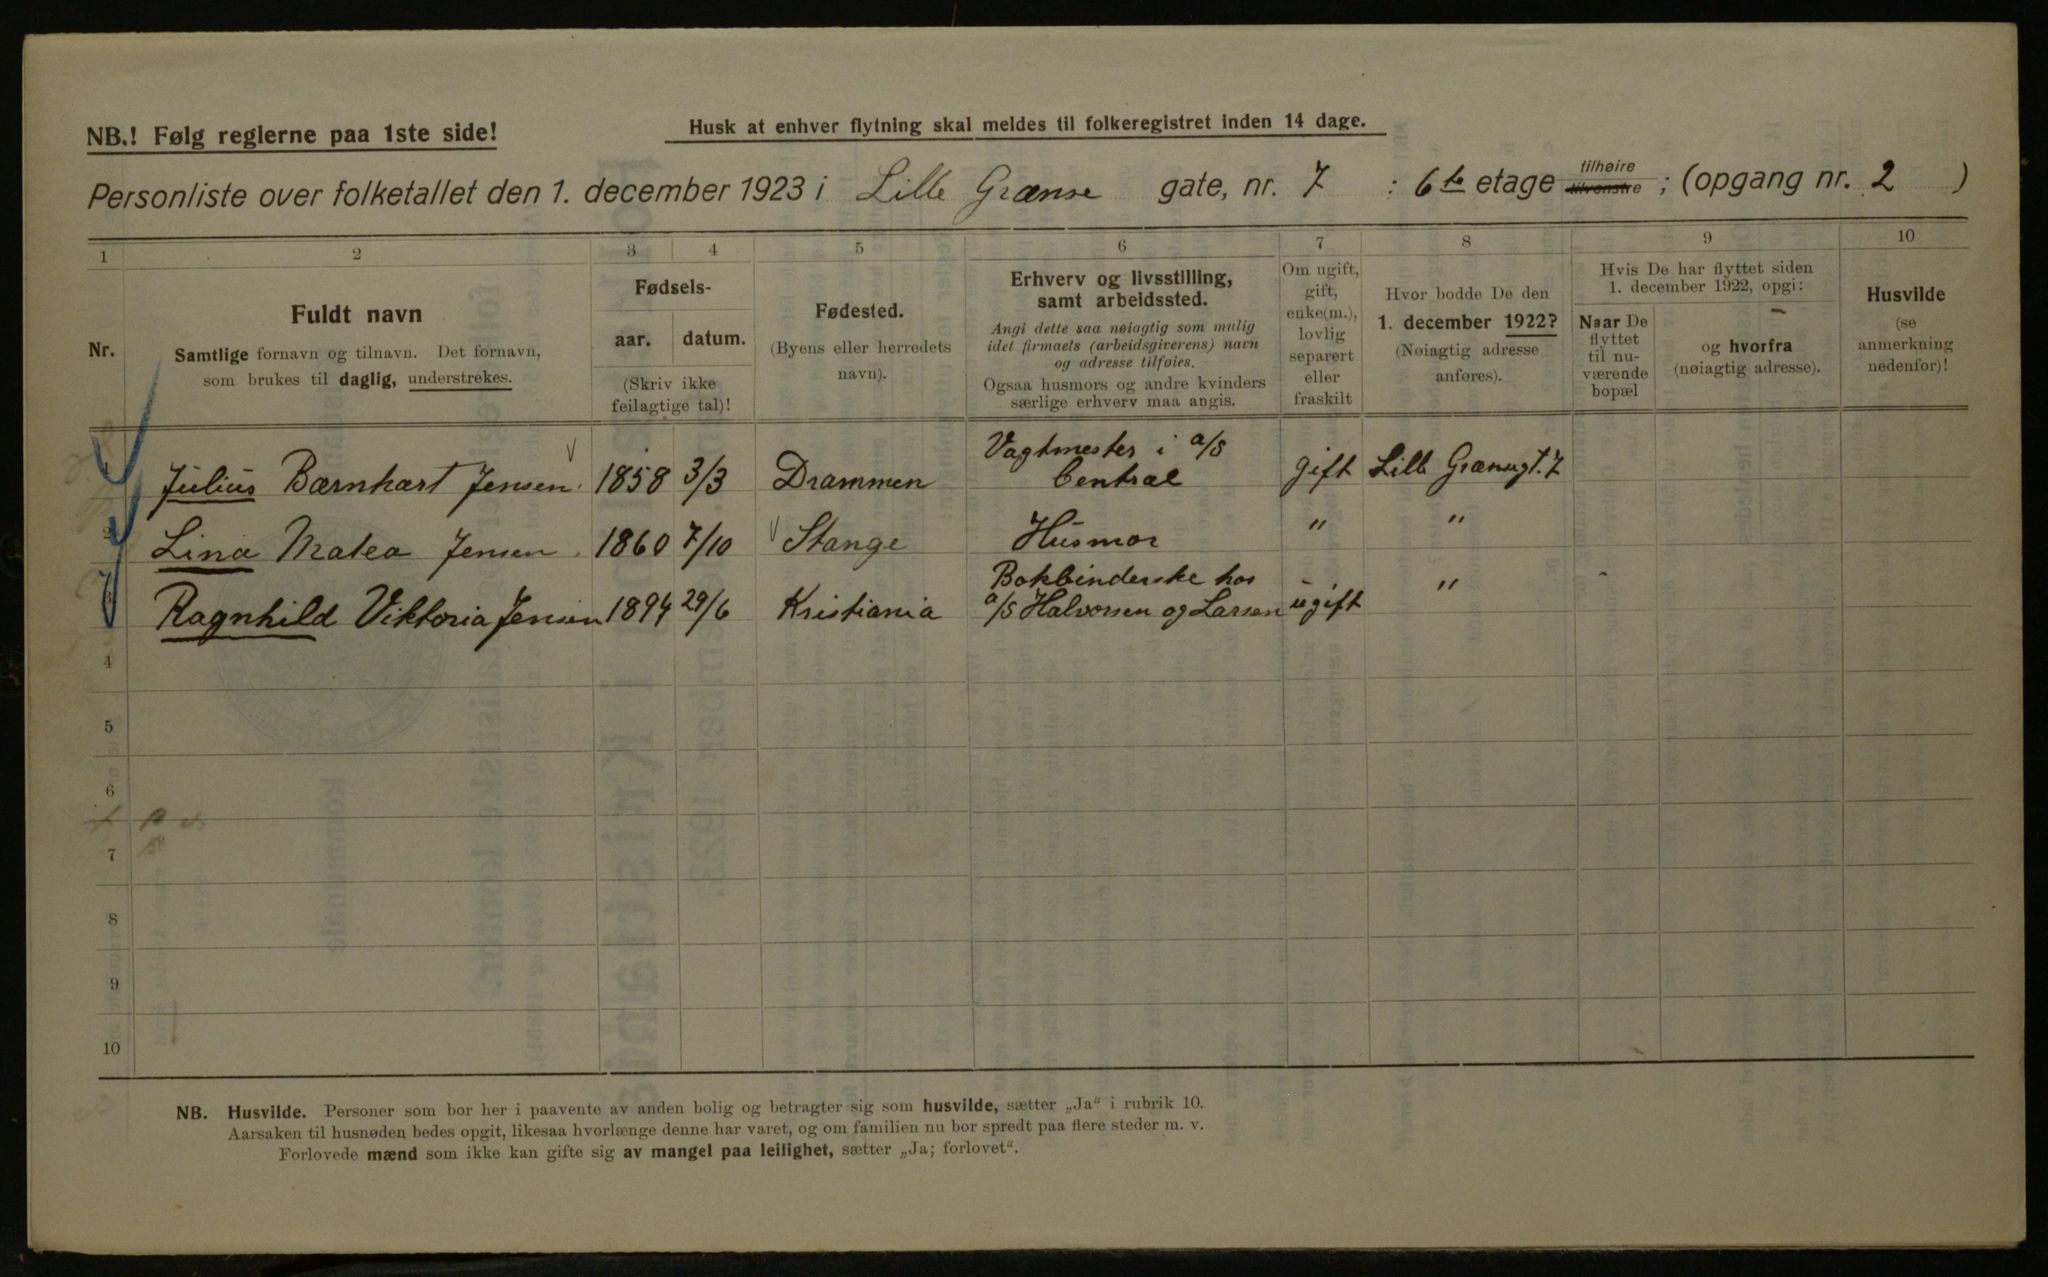 NB.! Følg reglerne paa 1ste side!
Husk at enhver flytning skal meldes til folkeregistret inden 14 dage.
Personliste over folketallet den 1. december 1923 i Lille Grænse gate, nr. 7 : 6te etage tilhøire tilvenstre ; (opgang nr. 2 )
1 2 3 4 5 6 7 8 9 10
Nr.
Fuldt navn
Samtlige fornavn og tilnavn. Det fornavn,
som brukes til daglig, understrekes.
Fødsels-
aar. datum.
(Skriv ikke
feilagtige tal)!
Fødested.
(Byens eller herredets
navn).
Erhverv og livsstilling,
samt arbeidssted.
Angi dette saa nøiagtig som mulig
idet firmaets (arbeidsgiverens) navn
og adresse tilføies.
Ogsaa husmors og andre kvinders
særlige erhverv maa angis.
Om ugift,
gift,
enke(m.),
lovlig
separert
eller
fraskilt
Hvor bodde De den
1. december 1922?
(Nøiagtig adresse
anføres).
Hvis De har flyttet siden
1. december 1922, opgi:
Naar De
flyttet
til nu-
værende
bopæl
og hvorfra
(nøiagtig adresse).
Husvilde
(se
anmerkning
nedenfor)!
1 Julius Bærnhart Jensen 1858 3/3 Drammen Vagtmester i a/s Central gift Lille Grænsgt. 7
2 Lina Matea Jensen 1860 7/10 Stange Husmor " "
3 Ragnhild Viktoria Jensen 1894 29/6 Kristiania Bokbinderske hos a/s Halvorsen og Larsen ugift "
4
5
6
7
8
9
10
NB. Husvilde. Personer som bor her i paavente av anden bolig og betragter sig som husvilde, sætter „Ja“ i rubrik 10.
Aarsaken til husnøden bedes opgit, likesaa hvorlænge denne har varet, og om familien nu bor spredt paa flere steder m. v.
Forlovede mænd som ikke kan gifte sig av mangel paa leilighet, sætter „Ja; forlovet“.